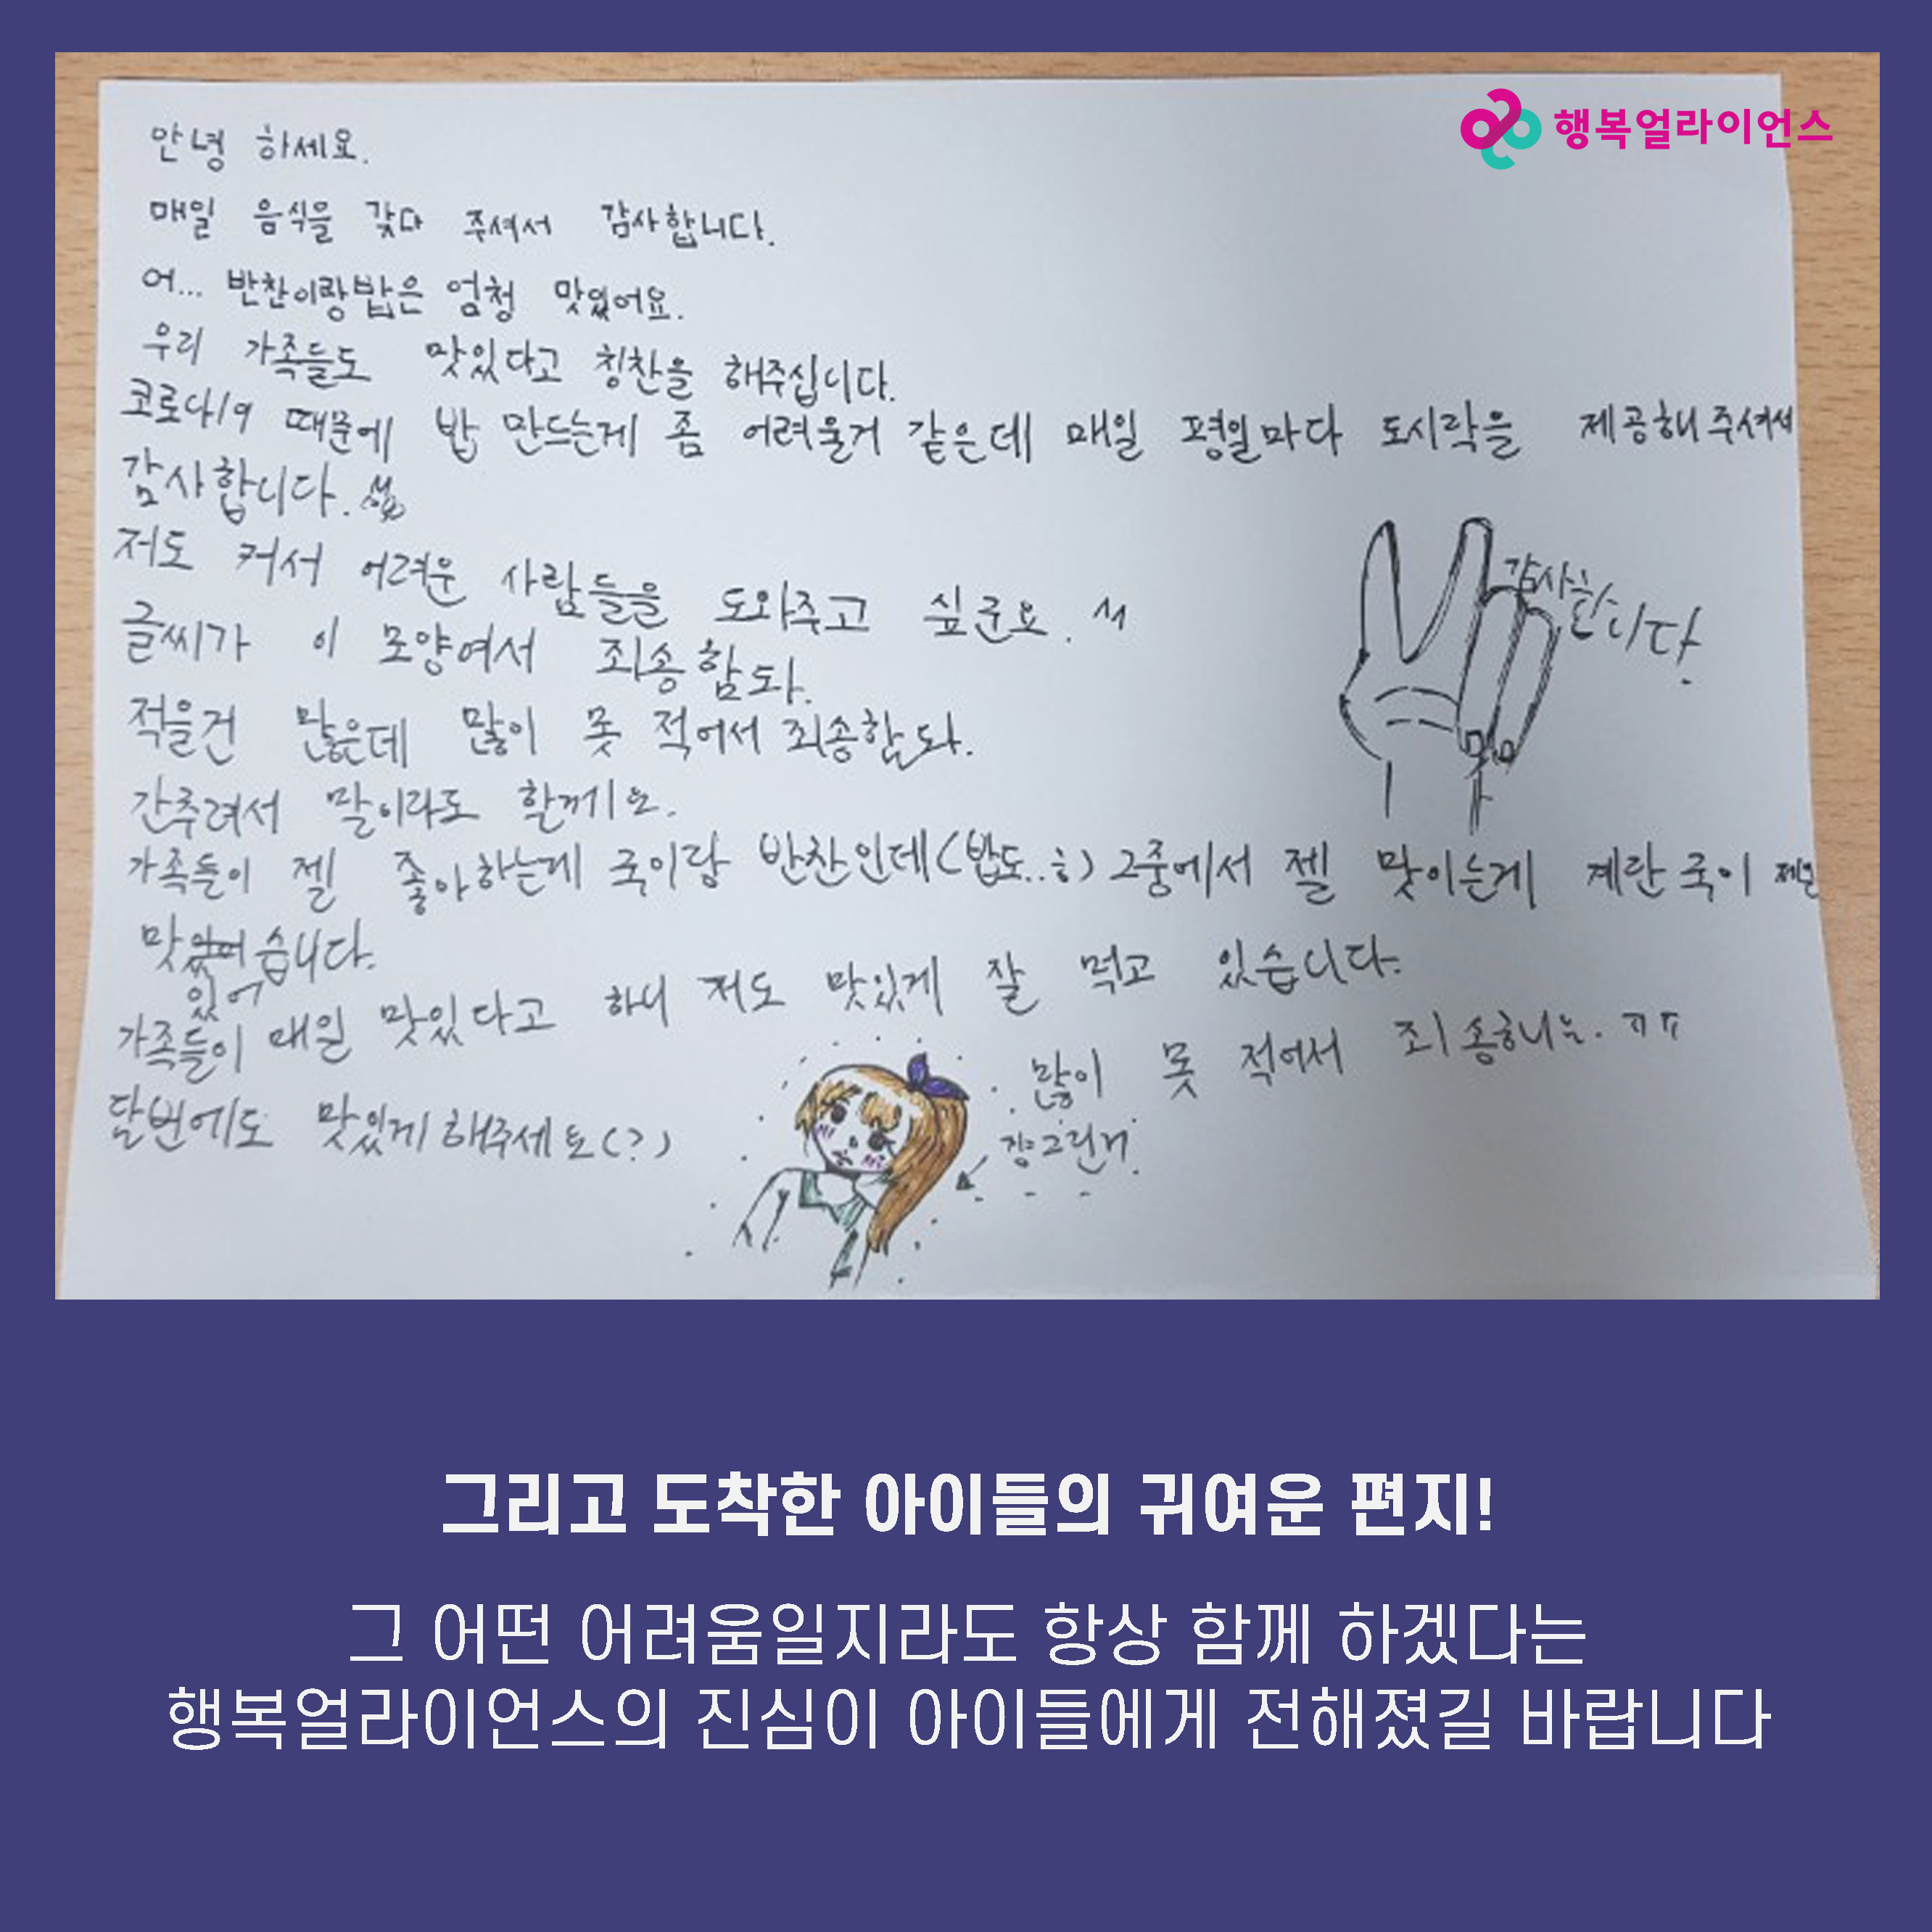 행복얼라이언스
안녕 하세요.
매일 음식을 갖다 주셔서 감사합니다.
어... 반찬이랑밥은 엄청 맛있어요.
우리 가족들도 맛있다고 칭찬을 해주십니다.
코로나19 때문에 밥 만드는게 좀 어려울거 같은데 매일 평일마다 도시락을 제공해주셔서
감사합니다.
저도 커서 어려운 사람들을 도와주고 싶군요. ^^
글씨가 이 모양여서 죄송함돠.
감사합니다.
적을건 많은데 많이 못 적어서 죄송함돠.
간추려서 말이라도 할께요.
가족들이 젤 좋아하는게 국이랑 반찬인데(밥도..ㅎ) 그중에서 젤 맛이는게 계란국이 제일
맛있어습니다.
있어
가족들이 매일 맛있다고 하니 저도 맛있게 잘 먹고 있습니다.
많이 못 적어서 죄송하니다. ㅠㅠ
달번에도 맛있게해주세요(?)
걍그린거.
그리고 도착한 아이들의 귀여운 편지!
그 어떤 어려움일지라도 항상 함께 하겠다는
행복얼라이언스의 진심이 아이들에게 전해졌길 바랍니다